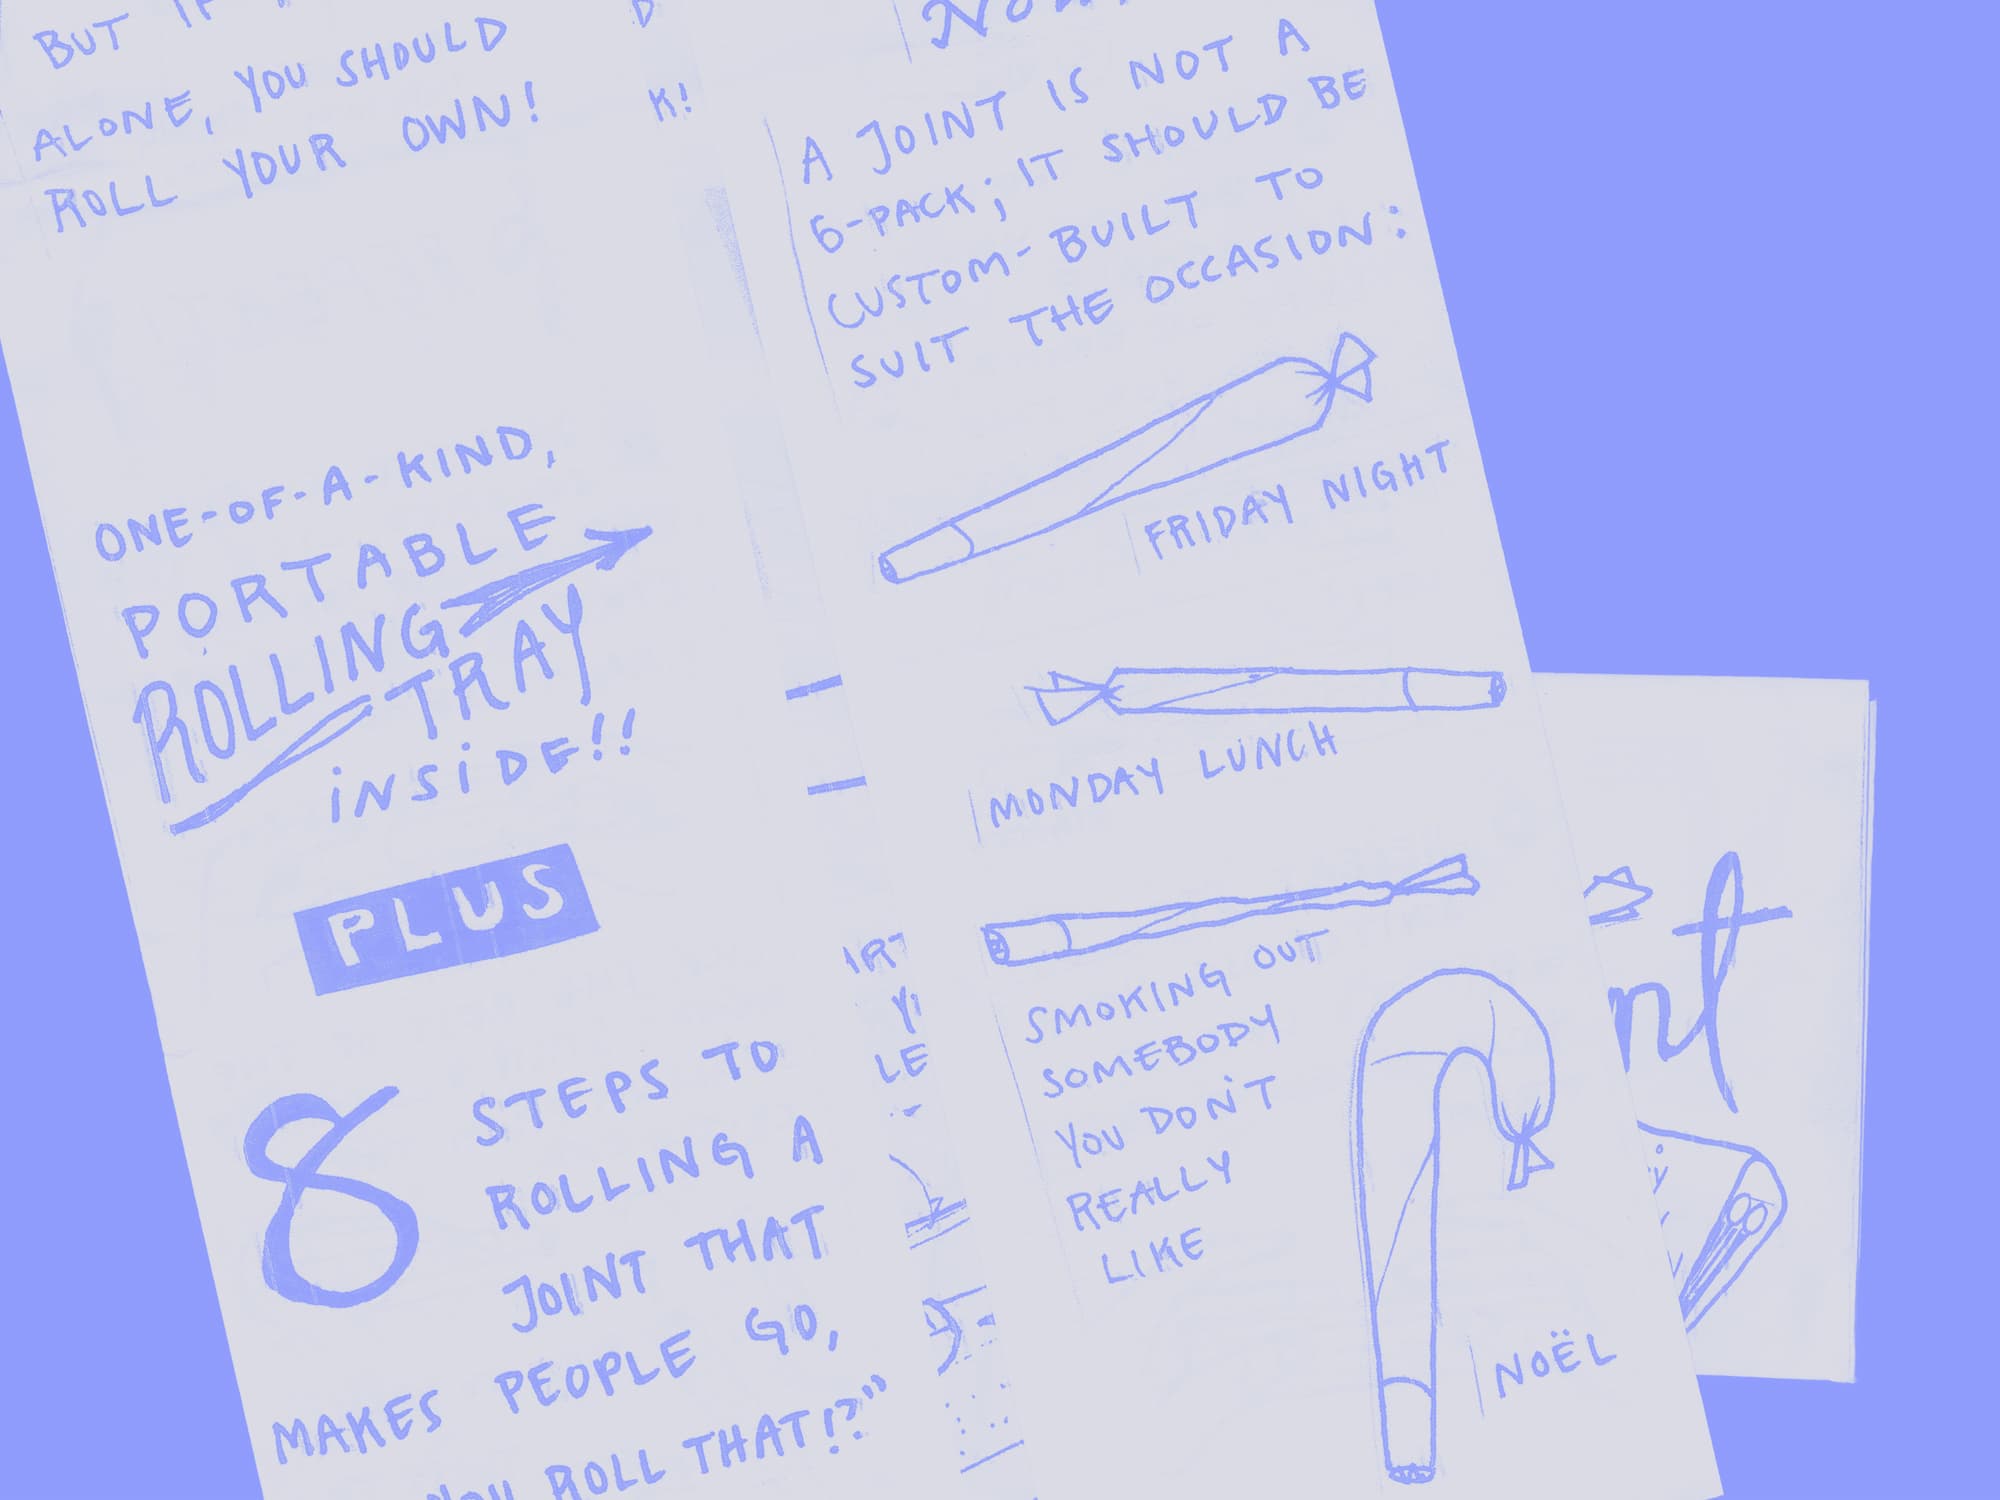 BUT IF
ALONE, YOU SHOULD
ROLL YOUR OWN!
D
K!
ONE-OF-A-KIND,
PORTABLE
ROLLING
TRAY
INSIDE!!
PLUS
8
STEPS TO
ROLLING A
JOINT THAT
MAKES PEOPLE GO,
YOU ROLL THAT!?"
LE
A JOINT IS NOT A
6-PACK; IT SHOULD BE
CUSTOM-BUILT TO
SUIT THE OCCASION:
FRIDAY NIGHT
MONDAY LUNCH
SMOKING OUT
SOMEBODY
YOU DON'T
REALLY
LIKE
NOËL
nt